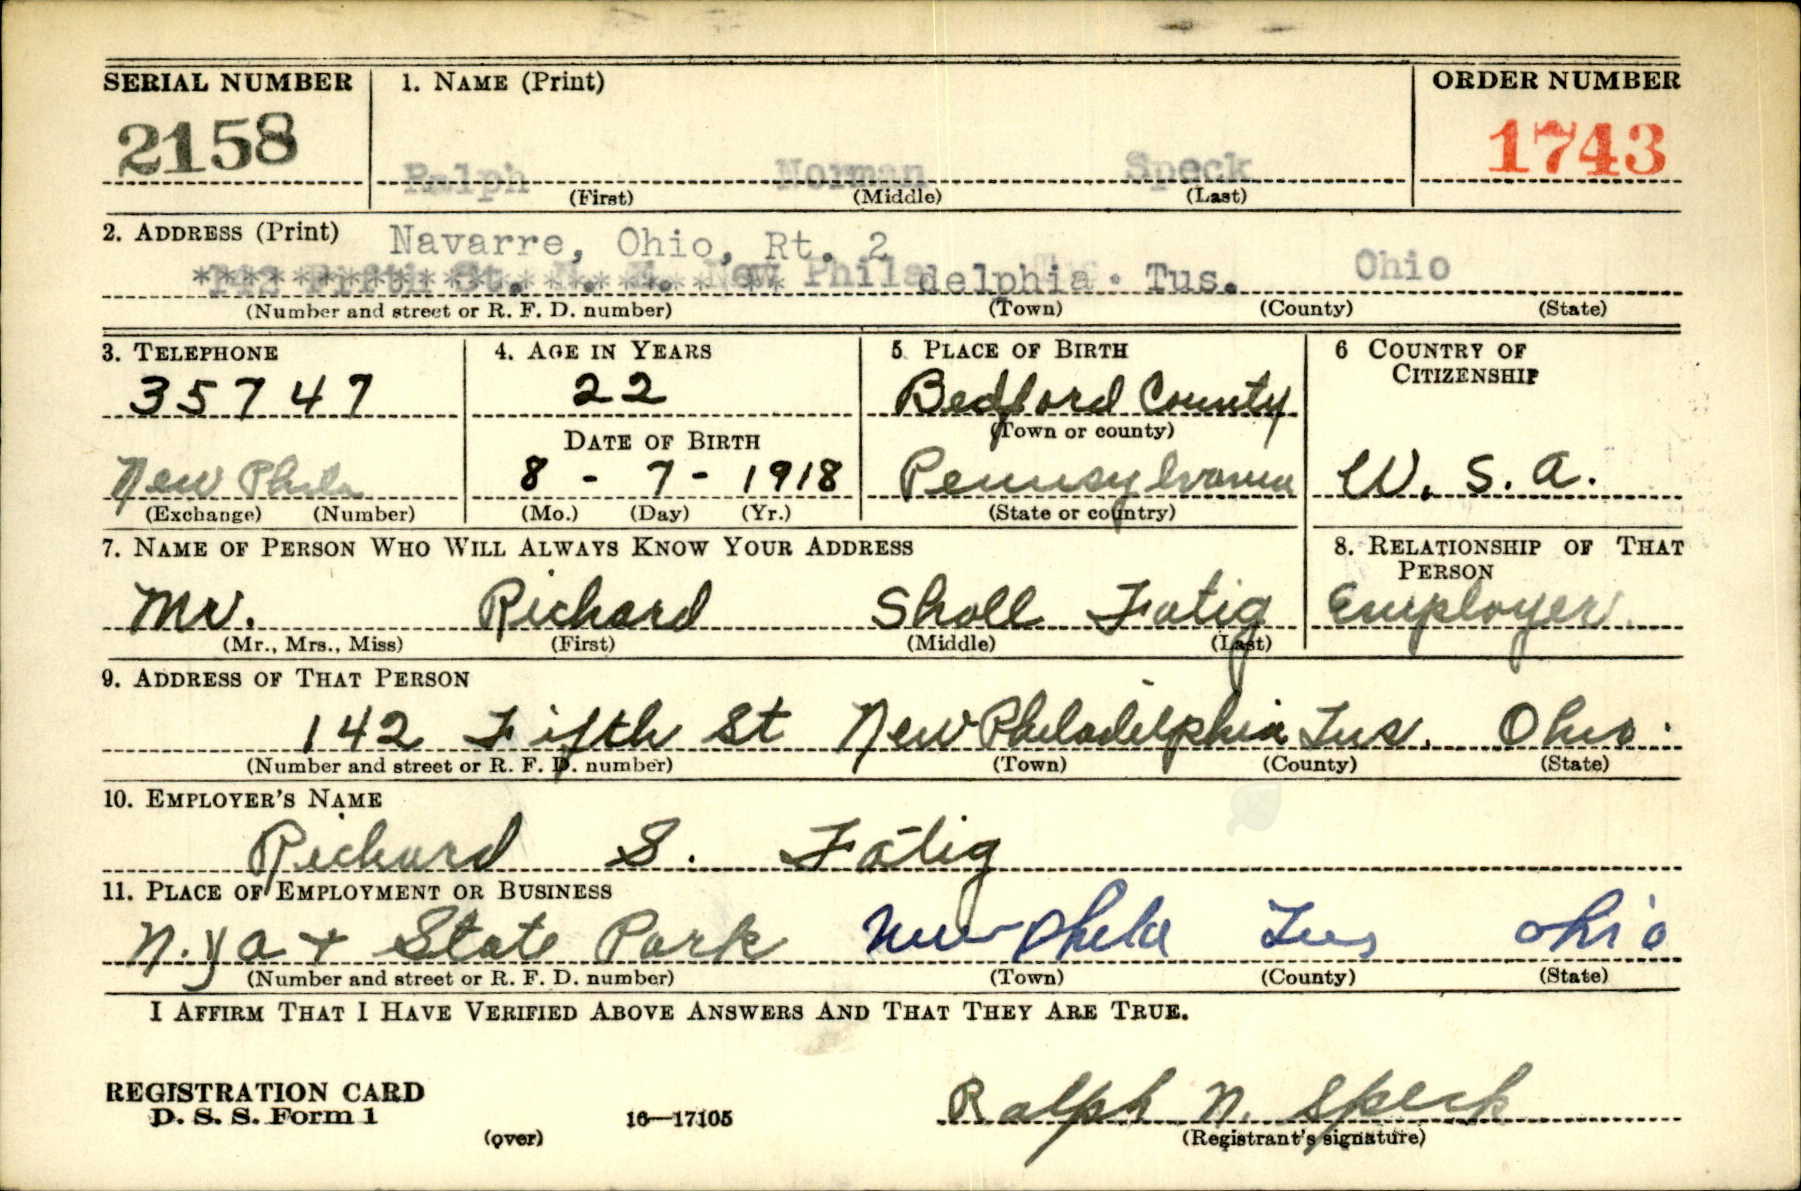 SERIAL NUMBER 1. NAME (Print) ORDER NUMBER
2158 Ralph Norman Speck 1743
(First) (Middle) (Last)
2. ADDRESS (Print) Navarre, Ohio, Rt. 2
142 Fifth St. N. E. New Philadelphia. Tus. Ohio
(Number and street or R. F. D. number) (Town) (County) (State)
3. TELEPHONE 4. AGE IN YEARS 5 PLACE OF BIRTH 6 COUNTRY OF
CITIZENSHIP
35747 22 Bedford County
DATE OF BIRTH (Town or county)
New Phila 8 - 7 - 1918 Pennsylvania U. S. A.
(Exchange) (Number) (Mo.) (Day) (Yr.) (State or country)
7. NAME OF PERSON WHO WILL ALWAYS KNOW YOUR ADDRESS 8. RELATIONSHIP OF THAT
PERSON
Mr. Richard Sholl Fatig Employer
(Mr., Mrs., Miss) (First) (Middle) (Last)
9. ADDRESS OF THAT PERSON
142 Fifth St New Philadelphia Tus. Ohio.
(Number and street or R. F. D. number) (Town) (County) (State)
10. EMPLOYER'S NAME
Richard S. Fatig
11. PLACE OF EMPLOYMENT OR BUSINESS
N.ya + State Park New Phila Tus Ohio
(Number and street or R. F. D. number) (Town) (County) (State)
I AFFIRM THAT I HAVE VERIFIED ABOVE ANSWERS AND THAT THEY ARE TRUE.
REGISTRATION CARD
D. S. S. Form 1 16—17105 Ralph N. Speck
(over) (Registrant's signature)